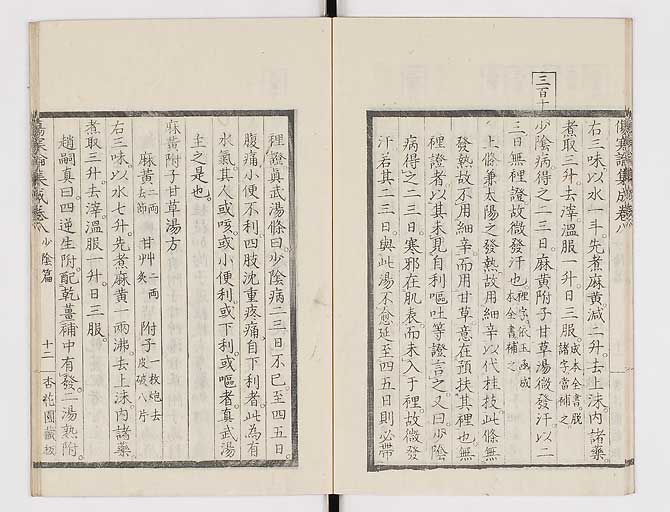 傷寒論集成卷八
右三味以水一斗先煮麻黃減二升去上沫内諸藥
煮取三升去滓溫服一升日三服。成本全書脫諸字當補之
三百十
少陰病得之二三日麻黃附子甘草湯微發汗以二
三日無裡證故微發汗也裡字依玉函成本全書補之
上條兼太陽之發熱故用細辛以代桂枝此條無
發熱故不用細辛而用甘草意在預扶其裡也無
裡證者以其未見自利嘔吐等證言之又曰少陰
病得之二三日寒邪在肌表而未入于裡故微發
汗若其二三日與此湯不愈延至四五日則必帶
裡證眞武湯條曰少陰病二三日不已至四五日
腹痛小便不利四肢沈重疼痛自下利者此為有
水氣其人或咳或小便利或下利或嘔者眞武湯
主之是也
麻黃附子甘草湯方
麻黃二兩去節 甘艸二兩灸 附子一枚炮去皮破八片
右三味以水七升先煮麻黃一兩沸去上沫内諸藥
煮取三升去滓溫服一升日三服。
趙嗣真曰四逆生附配乾薑補中有發二湯熟附
傷寒論集成卷八 少陰篇 十二 杏花園藏板